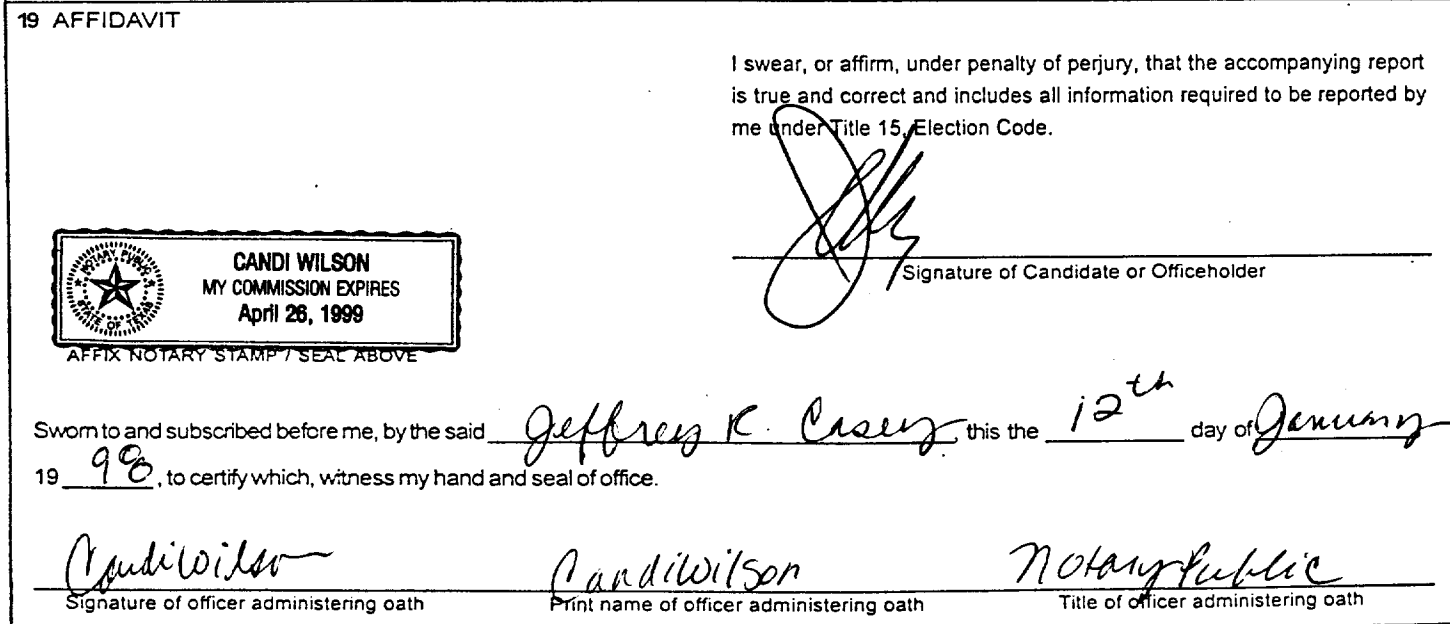 19 AFFIDAVIT
I swear, or affirm, under penalty of perjury, that the accompanying report
is true and correct and includes all information required to be reported by
me under Title 15, Election Code.
Signature of Candidate or Officeholder
NOTARY PUBLIC
STATE OF TEXAS
CANDI WILSON
MY COMMISSION EXPIRES
April 26, 1999
AFFIX NOTARY STAMP / SEAL ABOVE
Sworn to and subscribed before me, by the said Jeffrey R. Casey, this the 12th day of January
19 98, to certify which, witness my hand and seal of office.
Candi Wilson Candi Wilson Notary Public
Signature of officer administering oath Print name of officer administering oath Title of officer administering oath